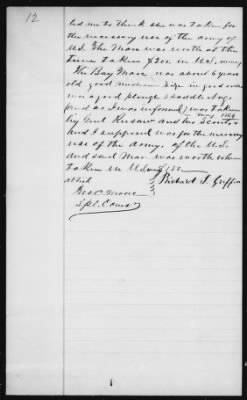 12
led me to think she was taken for
the necessary use of the army of
U.S. The Mare was worth at the
time taken $200 in U.S. money
The Bay Mare was about 6 year
old good medium size in good order
was a good plough & saddle
and as I was informed was taken
in May 1864
by Genl and his Scouts
And I supposed was for the necessary
use of the army of the U.S.
and said Mare was worth when
taken in U.S.
attest Richard S. Griffin
Geo. C.
Spl. Comr